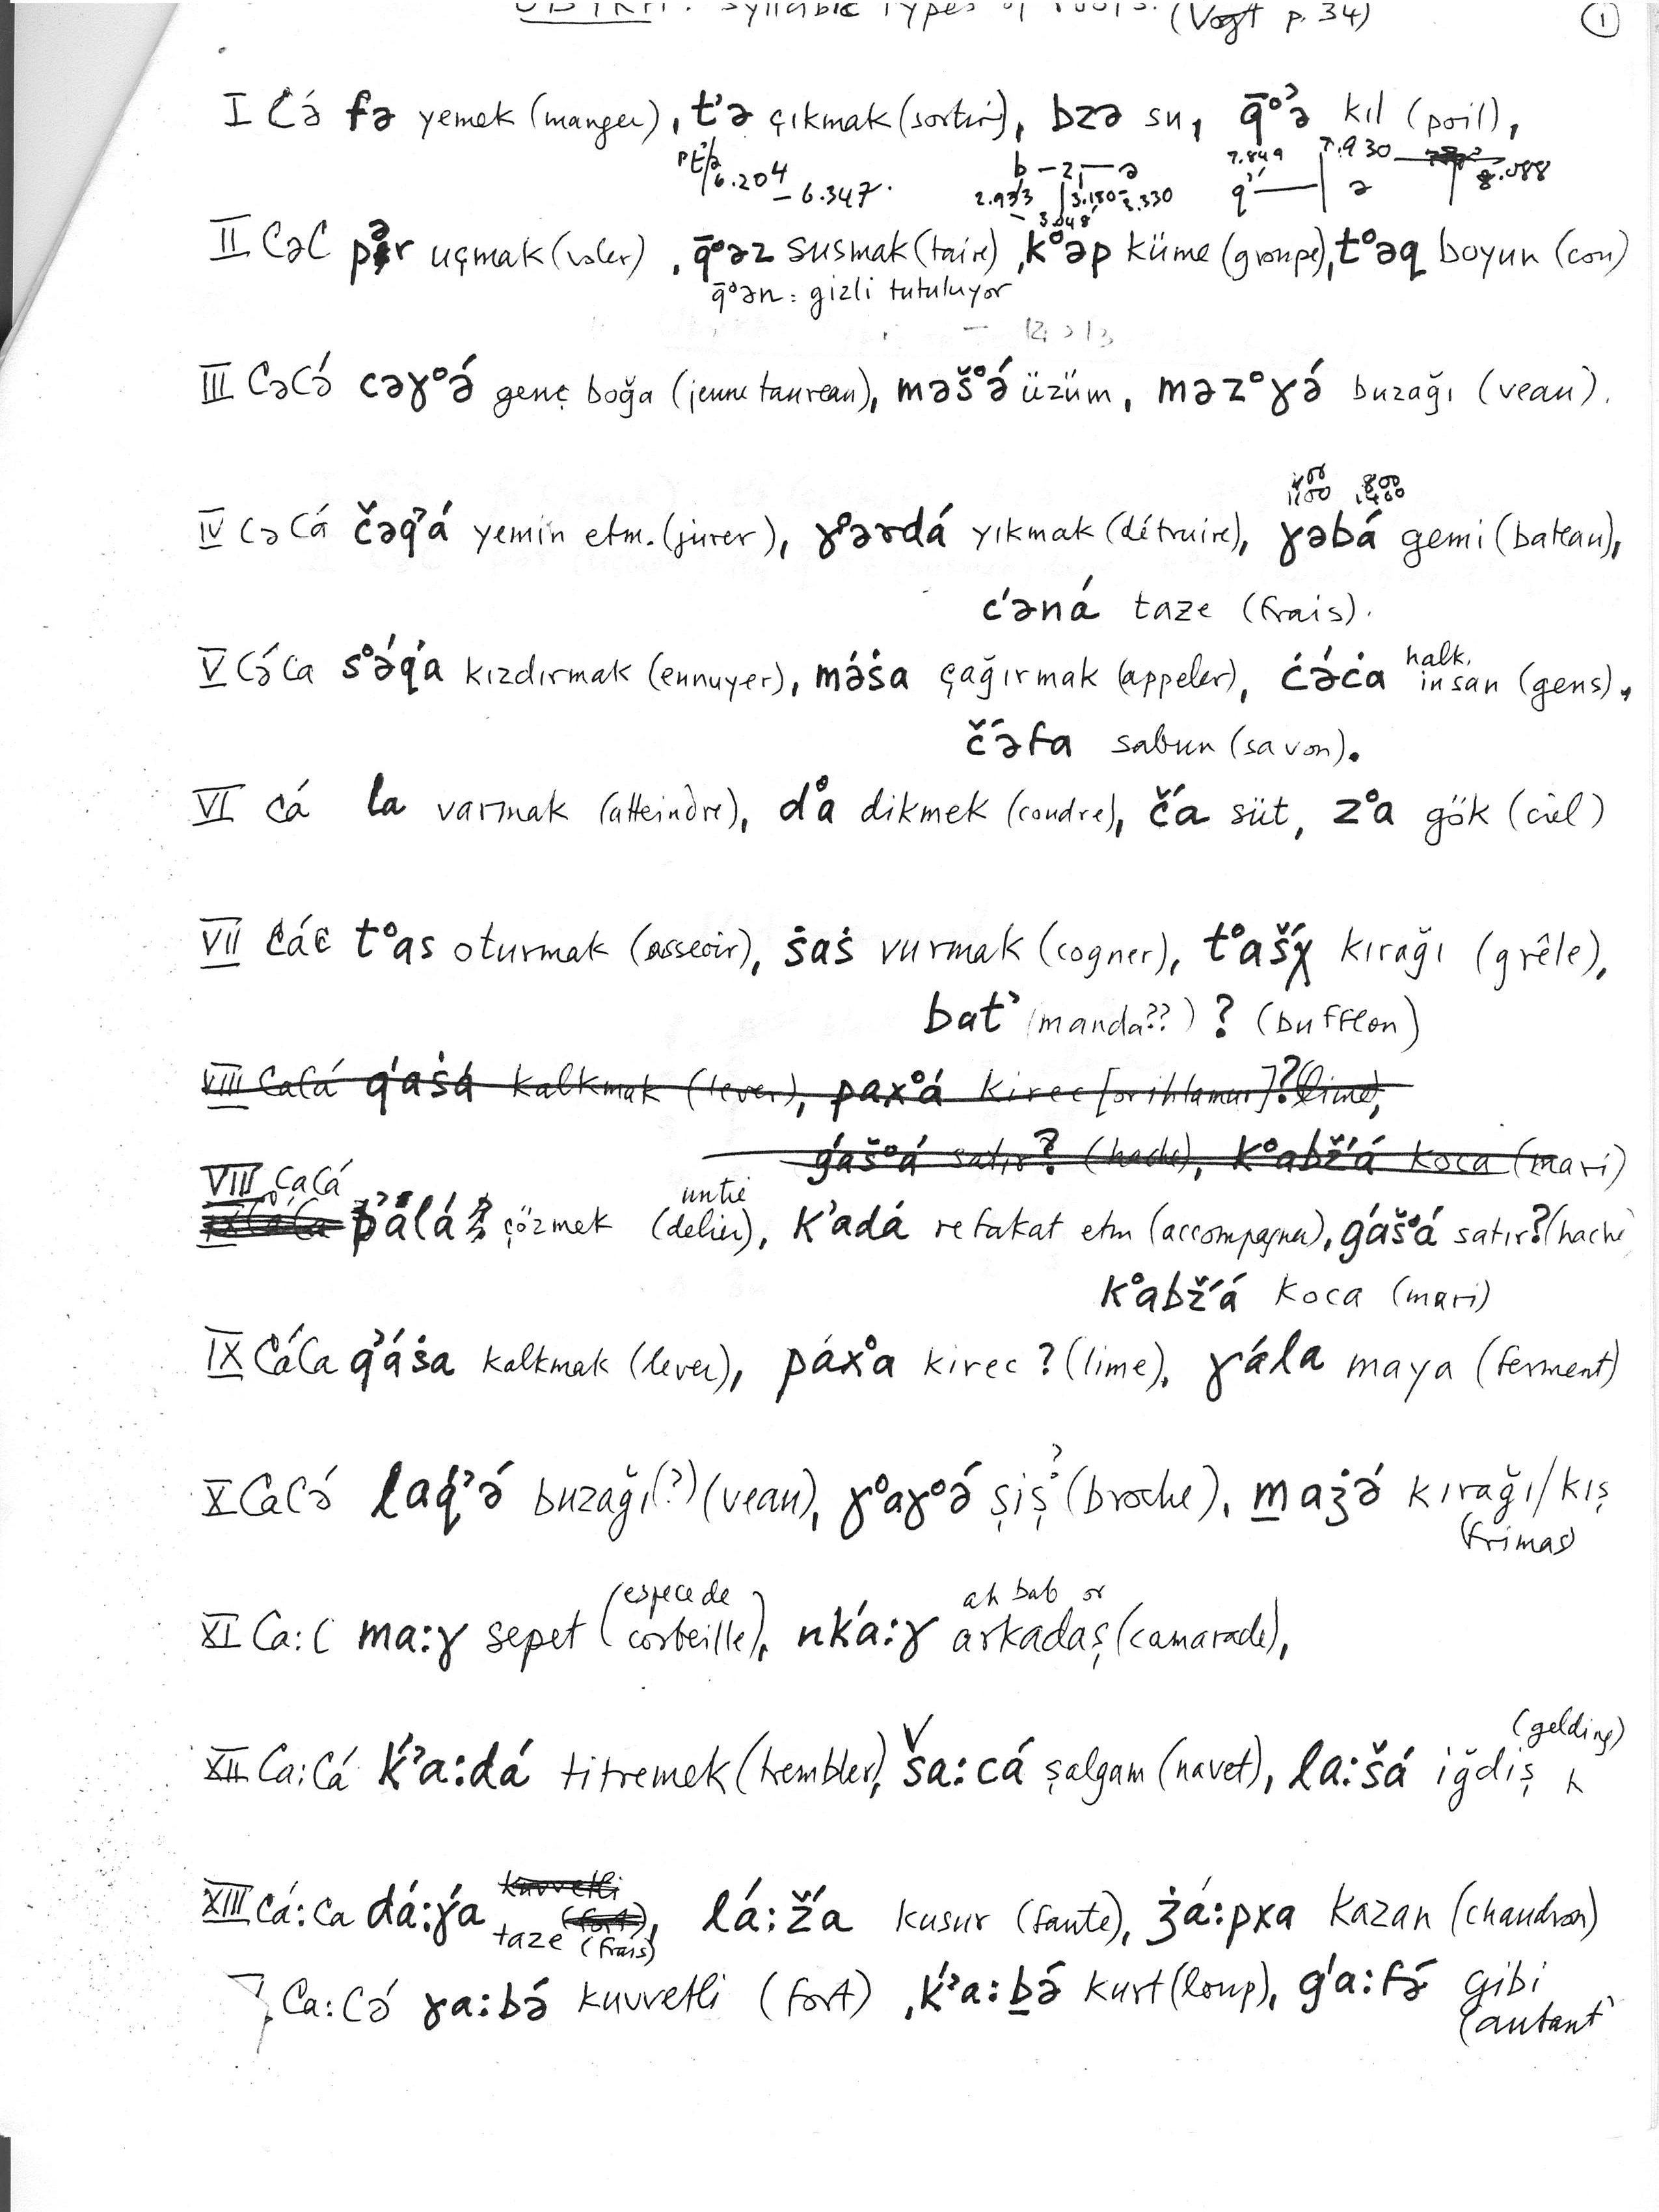 UBYKH : Syllabic Types of roots. (Vogt p. 34) ①
I Cə́ fə yemek (manger), t'ə çıkmak (sortir), bzə su, q̄°'ə kıl (poil),
pt'ə 6.204 – 6.347. b – z – ə 2.933 – 3.048 3.150 – 3.330 7.849 7.930 8.088 q' ə
II CəC pər uçmak (voler), q̄°əz susmak (taire), k°əp küme (groupe), t°əq boyun (cou)
q̄°ən : gizli tutuluyor
III CəCə́ cəɣ°ə́ genç boğa (jeune taureau), məš°ə́ üzüm, məz°ɣə́ buzağı (veau).
IV CəCá čəq'á yemin etm. (jurer), ɣ°ərdá yıkmak (détruire), ɣəbá gemi (bateau),
c'əná taze (frais).
V Cə́Ca s°ə́q'a kızdırmak (ennuyer), mə́ṡa çağırmak (appeler), ċə́ċa halk, insan (gens),
č'ə́fa sabun (savon).
VI Cá la varmak (atteindre), d°a dikmek (coudre), č'a süt, z°a gök (ciel)
VII CáC t°as oturmak (asseoir), ṡaṡ vurmak (cogner), t°aš'χ kırağı (grêle),
bat' (manda??) ? (bufflon)
VIII CaCá q'aṡá kalkmak (lever), pax°á kirec [or ıhlamur]? (lime),
g'aš°á satır? (hache), k°abž'á koca (mari)
VIII CaCá
p̓aĺá? çözmek untie (delier), k'adá refakat etm (accompagner), g'aš°á satır? (hache)
k°abž'á koca (mari)
IX CáCa q'áṡa kalkmak (lever), páx°a kirec ? (lime), ɣála maya (ferment)
X CaCə́ laq'ə́ buzağı(?) (veau), ɣ°aɣ°ə́ şiş? (broche), maʒ̇ə́ kırağı/kış
(frimas)
XI Ca:C ma:ɣ sepet (espece de corbeille), nk'a:ɣ ahbab or arkadaş (camarade),
XII Ca:Cá ḱ'a:dá titremek (trembler), ša:cá şalgam (navet), la:šá iğdiş (gelding)
XIII Cá:Ca dá:ɣ́a taze (frais), lá:ž'a kusur (faute), ʒ̇á:pxa kazan (chaudron)
Ca:Cə́ ɣa:bə́ kuvvetli (fort), ḱ'a:bə́ kurt (loup), g'a:fə́ gibi
(autant